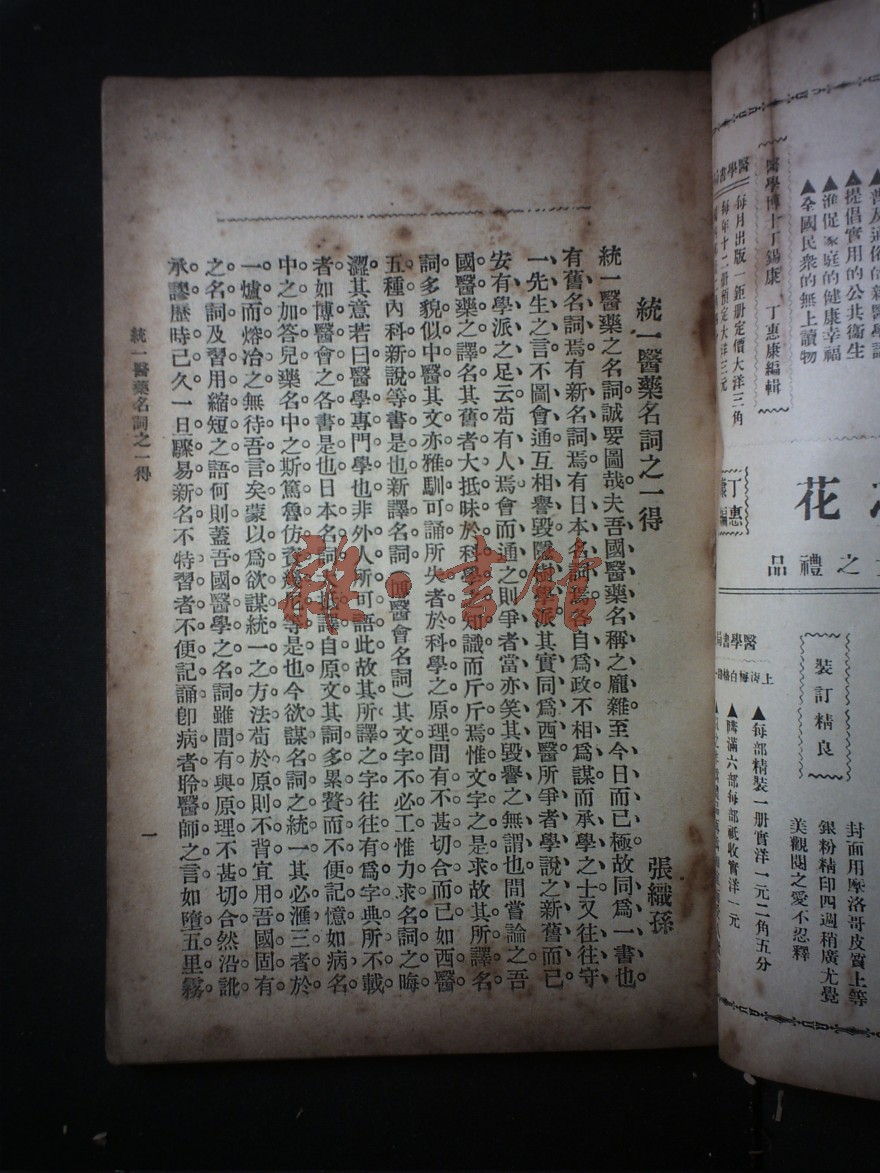 統一醫藥名詞之一得
張織孫
統一醫藥之名詞。誠要圖哉。夫吾國醫藥名稱之龐雜。至今日而已極。故同爲一書也。
有舊名詞焉、有新名詞焉、有日本名詞焉、各自爲政、不相爲謀、而承學之士、又往往守
一先生之言、不圖會通、互相譽毀、醫樹學派、其實同爲西醫、所爭者學說之新舊而已、
安有學派之足云、苟有人焉、會而通之、則爭者當亦笑其毀譽之無謂也、間嘗論之、吾
國醫藥之譯名、其舊者大抵昧於科學知識、而斤斤焉惟文字之是求、故其所譯名
詞、多貌似中醫、其文亦雅馴可誦、所失者於科學之原理、間有不甚切合而已、如西醫
五種內科新說等書是也、新譯名詞（博醫會名詞）其文字不必工、惟力求名詞之晦
澀、其意若曰醫學專門學也、非外人所可語此、故其所譯之字、往往有爲字典所不載
者、如博醫會之各書是也、日本名詞、大抵譯自原文、其詞多累贅而不便記憶、如病名
中之加答兒、藥名中之斯篤魯仿等是也、今欲謀名詞之統一、其必滙三者於
一爐而熔冶之、無待吾言矣、蒙以爲欲謀統一之方法、苟於原則不背、宜用吾國固有
之名詞、及習用縮短之語、何則、蓋吾國醫學之名詞、雖間有與原理不甚切合、然沿訛
承謬、歷時已久、一旦驟易新名、不特習者不便記誦、卽病者聆醫師之言、如墮五里霧
統一醫藥名詞之一得
一
雜·書館
▲提倡實用的公共衛生
▲准促家庭的健康幸福
▲全國民衆的無上讀物
醫學博士丁錫康 丁惠康編輯
每月出版一鉅册定價大洋三角
每年十二册預定大洋三元
花
之禮品
丁惠
裝訂精良
封面用摩洛哥皮質上等
銀粉精印四週稍廣尤覺
美觀閱之愛不忍釋
▲每部精裝一册實洋一元二角五分
▲購滿六部每部祇收實洋一元